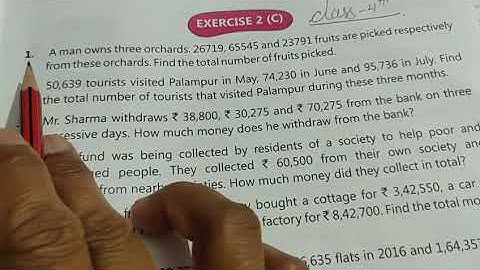 EXERCISE 2 (C)
class-4th
1. A man owns three orchards. 26719, 65545 and 23791 fruits are picked respectively
from these orchards. Find the total number of fruits picked.
50,639 tourists visited Palampur in May, 74,230 in June and 95,736 in July. Find
the total number of tourists that visited Palampur during these three months.
Mr. Sharma withdraws ₹ 38,800, ₹ 30,275 and ₹ 70,275 from the bank on three
cessive days. How much money does he withdraw from the bank?
fund was being collected by residents of a society to help poor and
ed people. They collected ₹ 60,500 from their own society and
from nearb ties. How much money did they collect in total?
y bought a cottage for ₹ 3,42,550, a car
factory for ₹ 8,42,700. Find the total mo
,635 flats in 2016 and 1,64,357